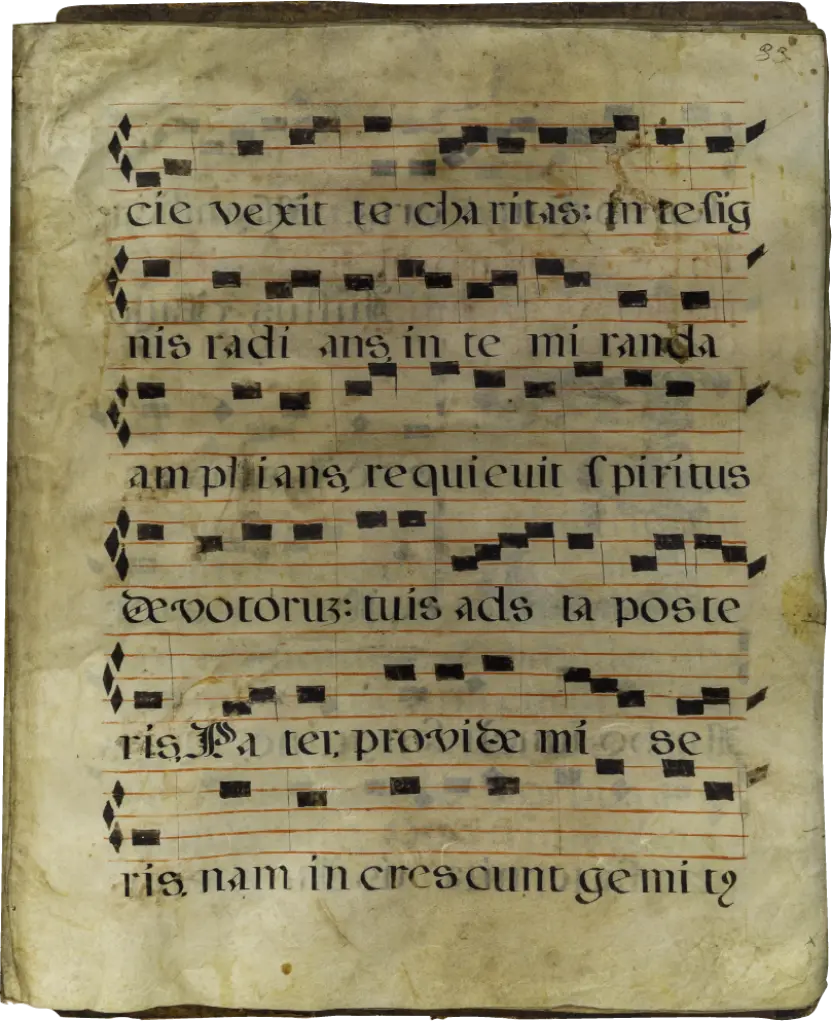 33
cie vexit te charitas: in te sig
nis radi ans, in te mi randa
am pli ians, requieuit spiritus
devotoruz: tuis ads ta poste
ris, Pa ter, provide mi se
ris, nam in crescunt gemi tꝰ